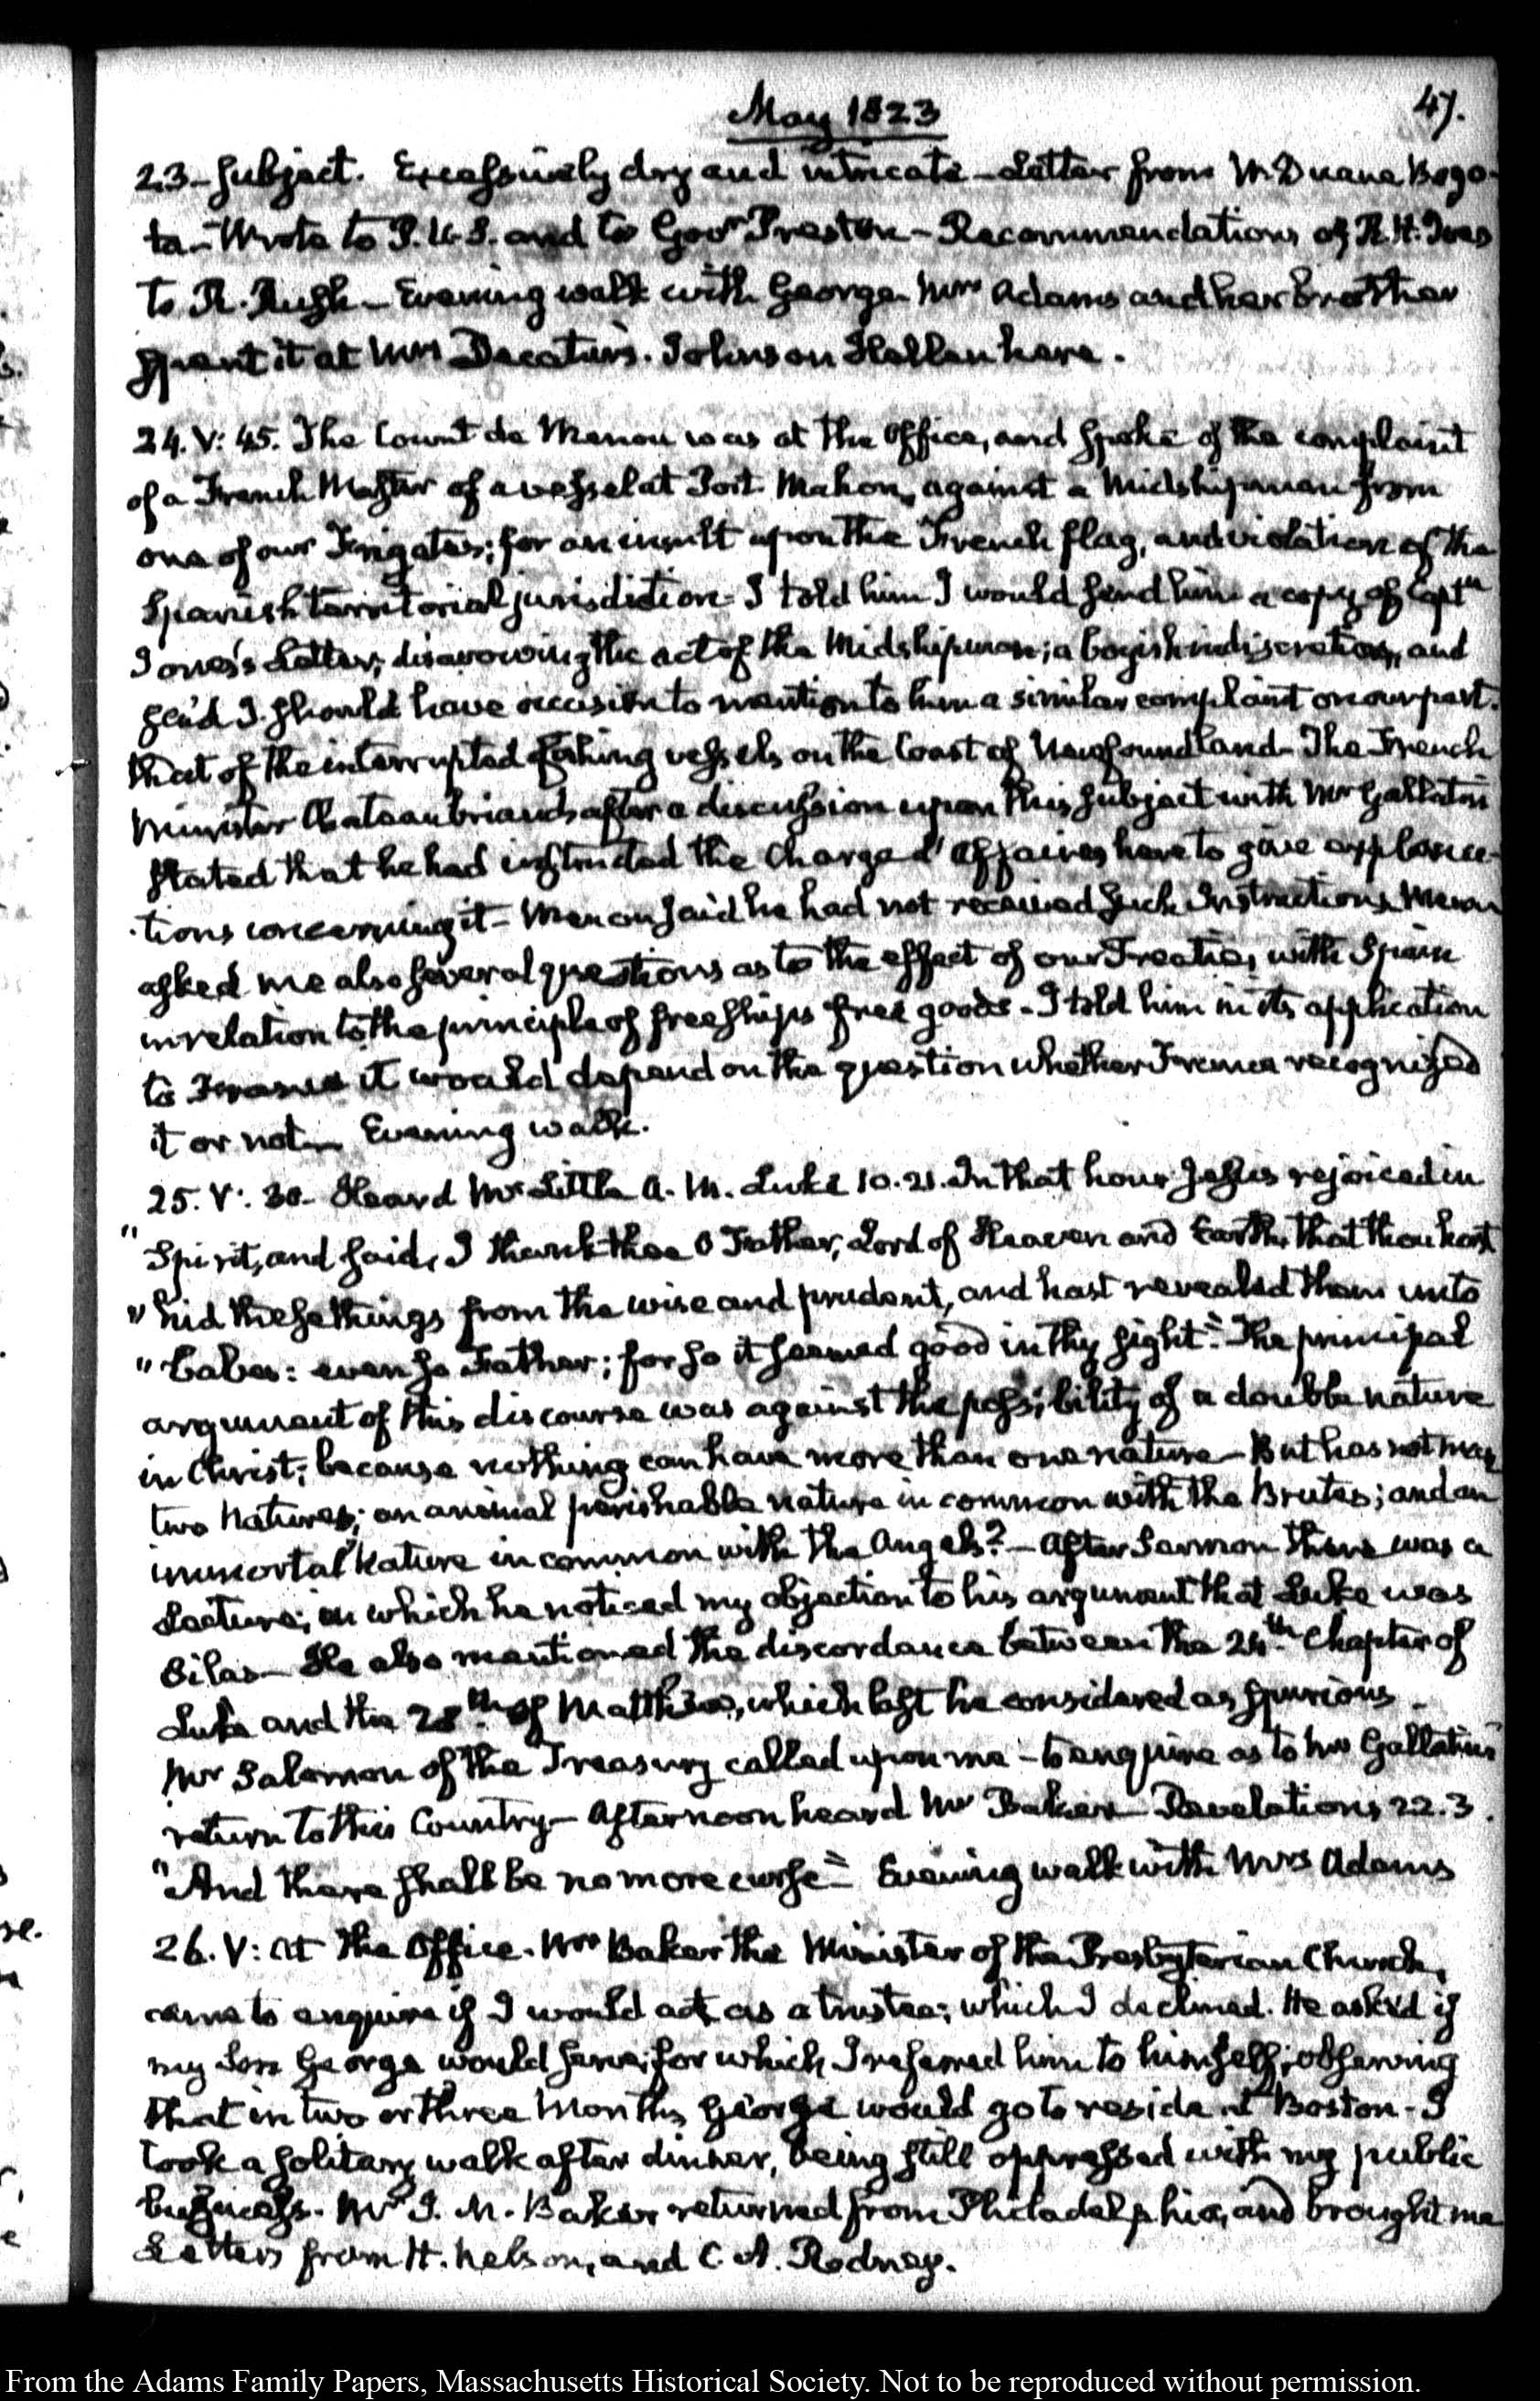 May 1823
47.
23- subject. Excessively dry and intricate - Letter from W. Duane Bogo-
ta - Wrote to P.U.S. and to Govr. Preston - Recommendations of R. H. Ives
to R. Rush - Evening walk with George. Mrs Adams and her brother
spent it at Mrs Decatur's. Johnson Hellen here.
24. V: 45. The Count de Menou was at the Office, and spoke of the complaint
of a French Master of a vessel at Port Mahon, against a Midshipman from
one of our Frigates; for an insult upon the French flag, and violation of the
Spanish territorial jurisdiction - I told him I would send him a copy of Captn
Jones's Letter; disavowing the act of the Midshipman; a boyish indiscretion, and
said I should have occasion to mention to him a similar complaint on our part.
that of the interrupted fishing vessels on the Coast of Newfoundland - The French
Minister Chateaubriand after a discussion upon this subject with Mr Gallatin
stated that he had instructed the Chargé d'Affaires here to give explana-
tions concerning it - Menou said he had not received such Instructions. Menou
asked me also several questions as to the effect of our Treaties with Spain
in relation to the principle of free ships free goods - I told him in its application
to France it would depend on the question whether France recognized
it or not - Evening walk.
25. V: 30 - Heard Mr Little A. M. Luke 10. 21. In that hour Jesus rejoiced in
"Spirit, and said, I thank thee O Father, Lord of Heaven and Earth, that thou hast
"hid these things from the wise and prudent, and hast revealed them unto
"babes: even so Father; for so it seemed good in thy sight" - The principal
argument of this discourse was against the possibility of a double nature
in Christ; because nothing can have more than one nature - But has not man
two Natures; an animal perishable nature in common with the Brutes; and an
immortal Nature in common with the Angels? - After Sermon there was a
Lecture; in which he noticed my objection to his argument that Luke was
Silas - He also mentioned the discordance between the 24th Chapter of
Luke and the 28th of Matthew, which last he considered as spurious -
Mr Salomon of the Treasury called upon me - to enquire as to Mr Gallatin's
return to this Country - Afternoon heard Mr Baker - Revelations 22. 3.
"And there shall be no more curse" - Evening walk with Mrs Adams
26. V: At the Office. Mr Baker the Minister of the Presbyterian Church,
came to enquire if I would act as a trustee; which I declined. He ask'd if
my Son George would serve; for which I referred him to himself; observing
that in two or three Months George would go to reside at Boston - I
took a solitary walk after dinner, being still oppressed with my public
business. Mr J. M. Baker returned from Philadelphia, and brought me
Letters from H. Nelson, and C. A. Rodney.
From the Adams Family Papers, Massachusetts Historical Society. Not to be reproduced without permission.